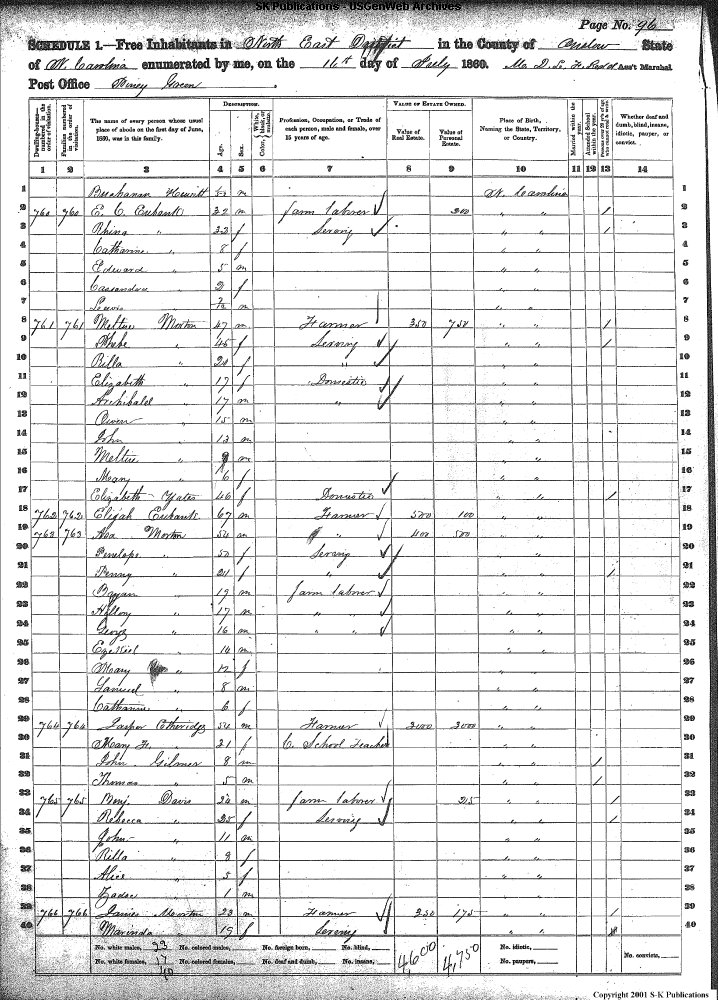 SK Publications - USGenWeb Archives
Page No. 96
SCHEDULE 1.—Free Inhabitants in North East District in the County of Onslow State
of N. Carolina enumerated by me, on the 16th day of July 1860. Ass't Marshal.
Post Office Piney Green
DESCRIPTION. VALUE OF ESTATE OWNED.
Dwelling-houses—numbered in the order of visitation. Families numbered in the order of visitation. The name of every person whose usual place of abode on the first day of June, 1860, was in this family. Age. Sex. Color, White, black, or mulatto. Profession, Occupation, or Trade of each person, male and female, over 15 years of age. Value of Real Estate. Value of Personal Estate. Place of Birth, Naming the State, Territory, or Country. Married within the year. Attended School within the year. Persons over 20 y'rs of age who cannot read & write. Whether deaf and dumb, blind, insane, idiotic, pauper, or convict.
1 2 3 4 5 6 7 8 9 10 11 12 13 14
1 Buchanan Hewitt m N. Carolina 1
2 760 760 E. C. Eubanks 32 m farm laborer 200 " " / 2
3 Rhina " 32 f Serving " " / 3
4 Catharine " 8 f " " 4
5 Edward " 5 m " " 5
6 Cassandra " 2 f " " 6
7 Lewis " m " " 7
8 761 761 Meltire Morton 47 m Farmer 350 750 " " / 8
9 Phebe " 45 f Serving " " / 9
10 Rilla " 20 f " " " 10
11 Elizabeth " 17 f Domestic " " 11
12 Archibald " 17 m " " " 12
13 Owen " 15 m " " 13
14 John " 13 m " " 14
15 Meltire " 9 m " " 15
16 Mary " 6 f " " 16
17 Elizabeth Yates 46 f Domestic " " / 17
18 762 762 Elijah Eubanks 67 m Farmer 500 100 " " 18
19 763 763 Asa Morton 54 m " 400 500 " " 19
20 Penelope " 50 f Serving " " 20
21 Penny " 21 f " " " / 21
22 Bryan " 19 m farm laborer " " 22
23 " 17 m " " " " 23
24 George " 16 m " " " " 24
25 Ezekiel " 14 m " " 25
26 Mary " 12 f " " 26
27 Samuel " 8 m " " 27
28 Catharine " 6 f " " 28
29 764 764 Jasper Etheridge 54 m Farmer 3000 3000 " " 29
30 Mary F. " 21 f C. School Teacher " " 30
31 John Gilmer 8 m " " / 31
32 Thomas " 5 m " " / 32
33 765 765 Benj. Davis 24 m farm laborer 25 " " / 33
34 Rebecca " 25 f Serving " " / 34
35 John " 11 m " " 35
36 Rilla " 8 f " " 36
37 Alice " 5 f " " 37
38 Zadoc " 1 m " " 38
39 766 766 James Morton 23 m Farmer 250 175 " " / 39
40 Marinda " 19 f Serving " " 40
No. white males, 23 No. colored males, No. foreign born, No. blind, 4600 4,750 No. idiotic, No. convicts,
No. white females, 17 No. colored females, No. deaf and dumb, No. insane, No. paupers,
40
Copyright 2001 S-K Publications